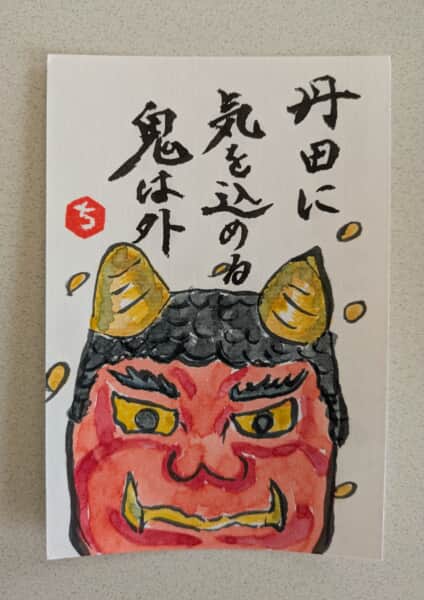 丹田に
気を込めね
鬼は外
ち